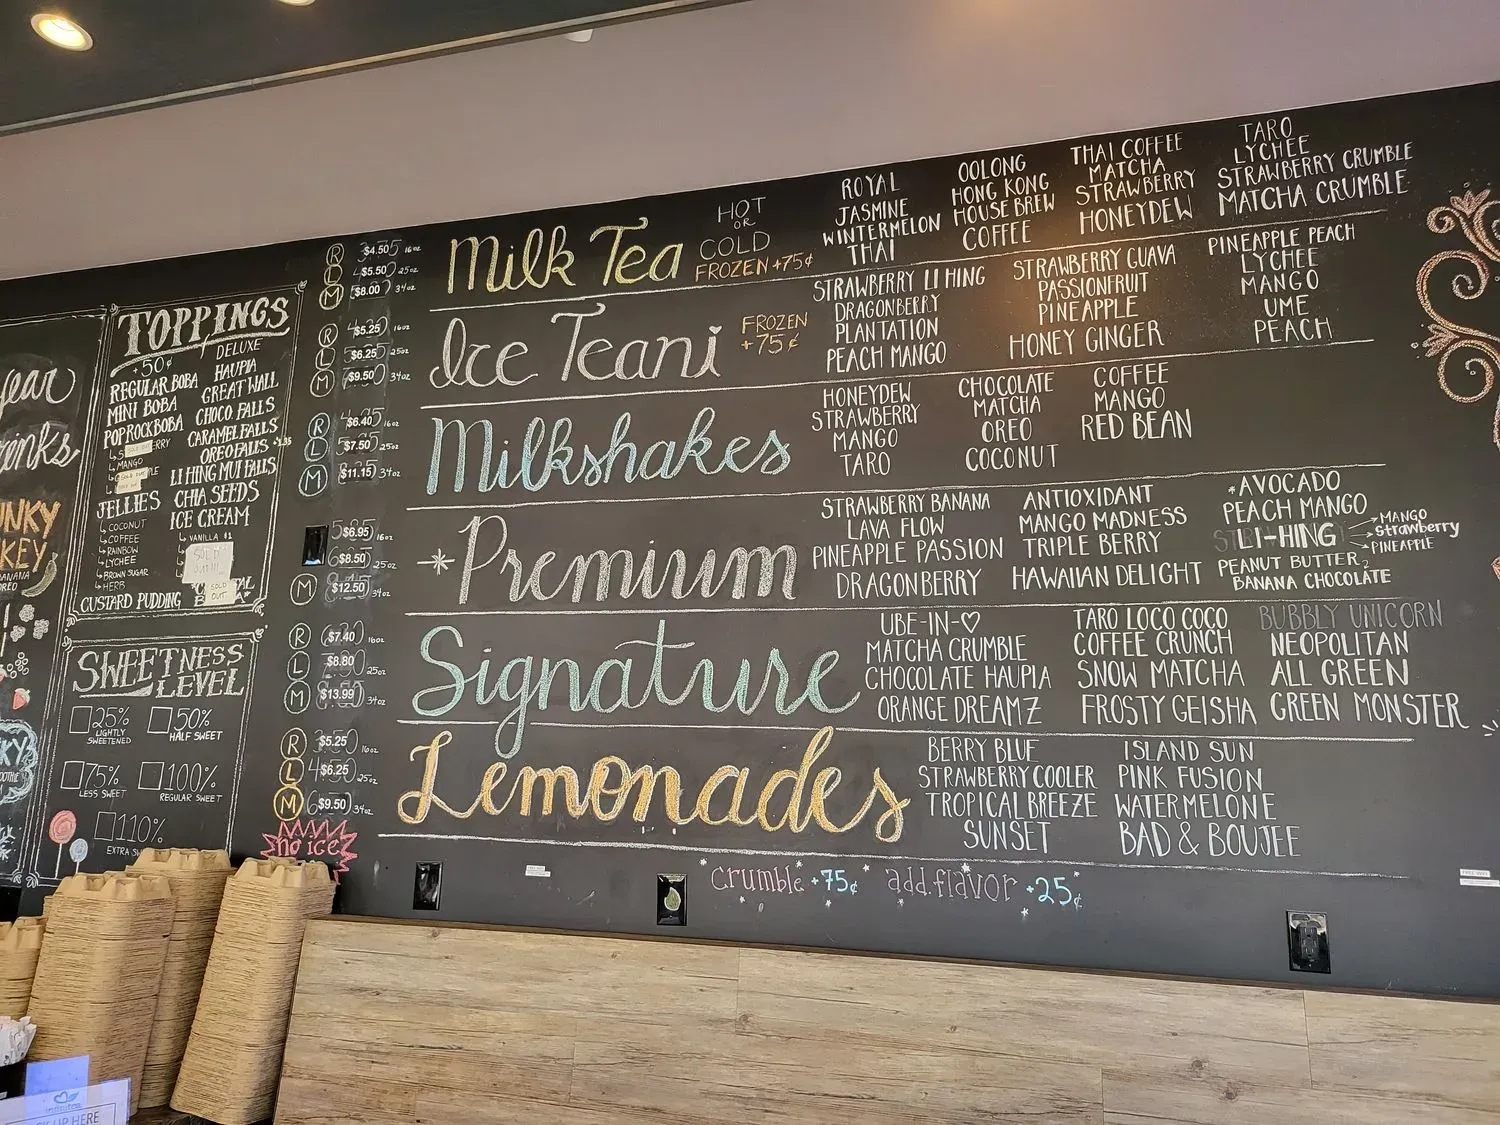 ear
inks
UNKY
KEY
ANANA
TOPPINGS
+50¢
REGULAR BOBA
MINI BOBA
POPROCK BOBA
MANGO
JELLIES
COCONUT
COFFEE
RAINBOW
LYCHEE
BROWN SUGAR
HERB
CUSTARD PUDDING
DELUXE
HAUPIA
GREAT WALL
CHOCO. FALLS
CARAMEL FALLS
OREO FALLS
LI HING MUI FALLS
CHIA SEEDS
ICE CREAM
VANILLA $1
SOLD OUT
SWEETNESS
LEVEL
25% LIGHTLY SWEETENED
50% HALF SWEET
75% LESS SWEET
100% REGULAR SWEET
110%
R $4.50 16oz
L $5.50 25oz
M $8.00 34oz
Milk Tea
HOT
OR
COLD
FROZEN +75¢
ROYAL
JASMINE
WINTERMELON
THAI
OOLONG
HONG KONG
HOUSE BREW
COFFEE
THAI COFFEE
MATCHA
STRAWBERRY
HONEYDEW
TARO
LYCHEE
STRAWBERRY CRUMBLE
MATCHA CRUMBLE
R $5.25 16oz
L $6.25 25oz
M $9.50 34oz
Ice Teani
FROZEN
+75¢
STRAWBERRY LI HING
DRAGONBERRY
PLANTATION
PEACH MANGO
STRAWBERRY GUAVA
PASSIONFRUIT
PINEAPPLE
HONEY GINGER
PINEAPPLE PEACH
LYCHEE
MANGO
UME
PEACH
R $6.40 16oz
L $7.50 25oz
M $11.15 34oz
Milkshakes
HONEYDEW
STRAWBERRY
MANGO
TARO
CHOCOLATE
MATCHA
OREO
COCONUT
COFFEE
MANGO
RED BEAN
$6.95 16oz
$8.50 25oz
M $12.50 34oz
*Premium
STRAWBERRY BANANA
LAVA FLOW
PINEAPPLE PASSION
DRAGONBERRY
ANTIOXIDANT
MANGO MADNESS
TRIPLE BERRY
HAWAIIAN DELIGHT
*AVOCADO
PEACH MANGO
LI-HING
MANGO
Strawberry
PINEAPPLE
PEANUT BUTTER
BANANA CHOCOLATE
R $7.40 16oz
L $8.80 25oz
M $13.99 34oz
Signature
UBE-IN-♡
MATCHA CRUMBLE
CHOCOLATE HAUPIA
ORANGE DREAMZ
TARO LOCO COCO
COFFEE CRUNCH
SNOW MATCHA
FROSTY GEISHA
BUBBLY UNICORN
NEOPOLITAN
ALL GREEN
GREEN MONSTER
R $5.25 16oz
L $6.25 25oz
M $9.50 34oz
no ice
Lemonades
BERRY BLUE
STRAWBERRY COOLER
TROPICAL BREEZE
SUNSET
ISLAND SUN
PINK FUSION
WATERMELONE
BAD & BOUJEE
crumble +75¢ add flavor +25¢
UP HERE